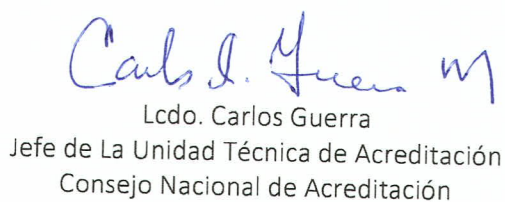 Carlos I. Guerra M
Lcdo. Carlos Guerra
Jefe de La Unidad Técnica de Acreditación
Consejo Nacional de Acreditación